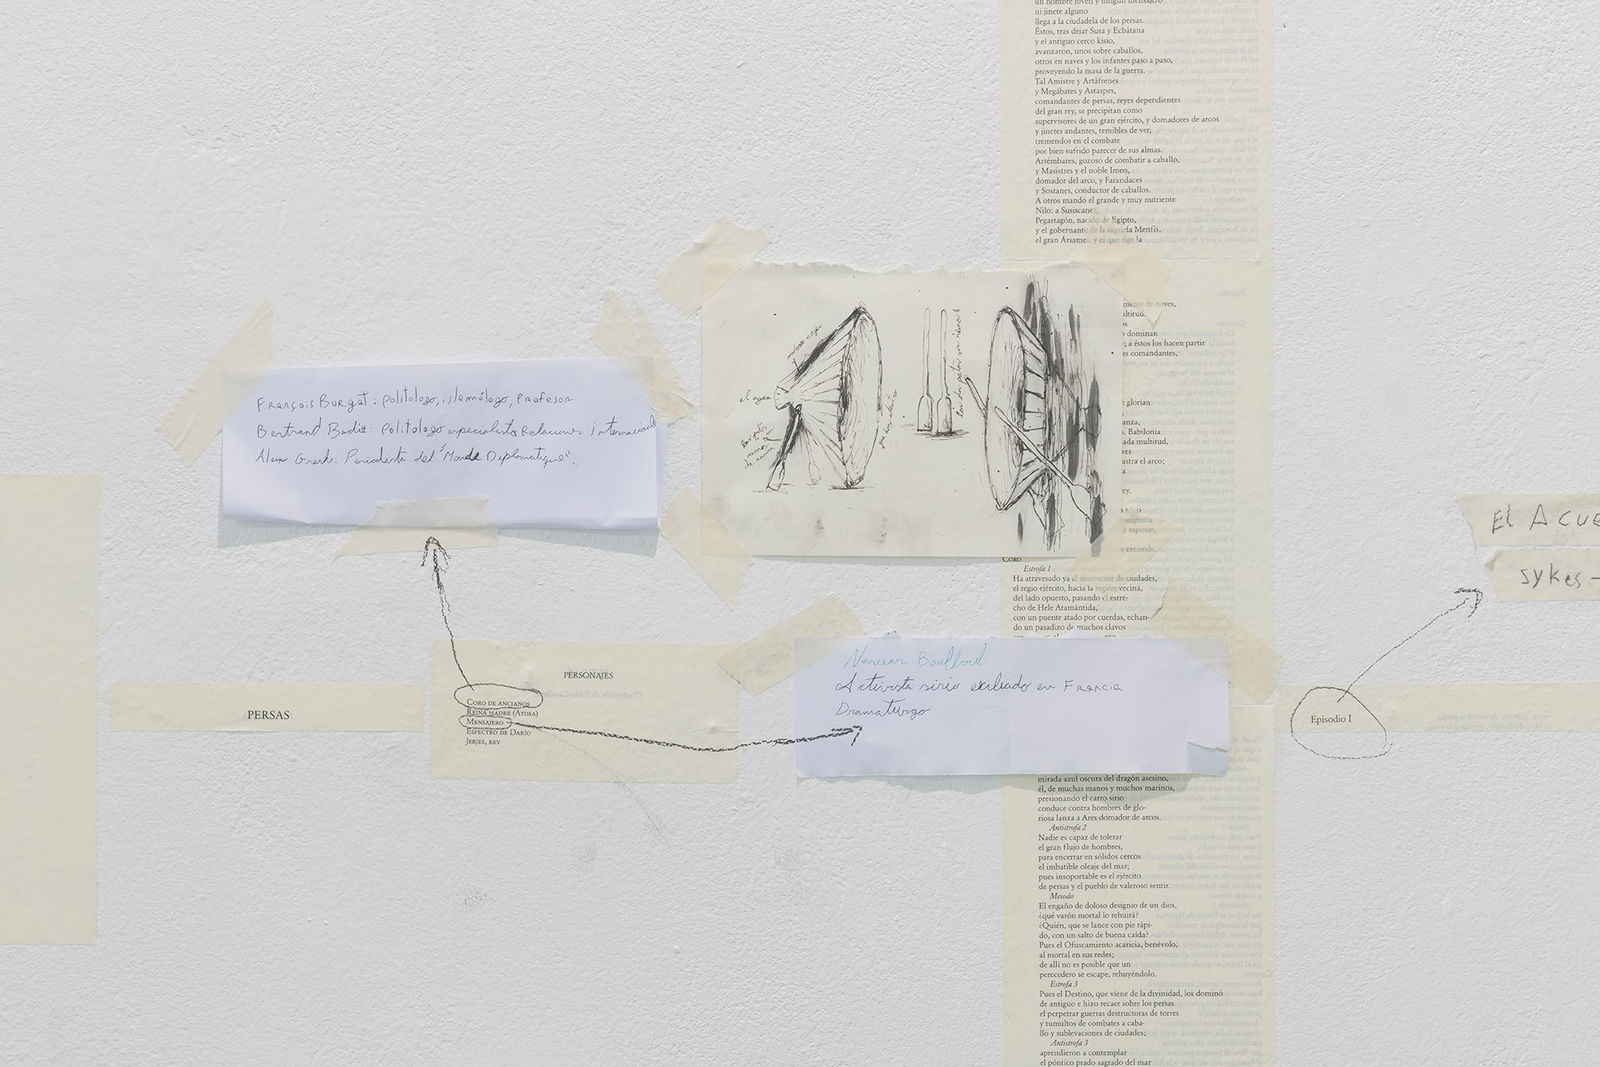 ni jinete alguno
llega a la ciudadela de los persas.
Éstos, tras dejar Susa y Ecbátana
y el antiguo cerco kisio,
avanzaron, unos sobre caballos,
otros en naves y los infantes paso a paso,
proveyendo la masa de la guerra.
Tal Amistre y Artáfrenes
y Megábates y Astaspes,
comandantes de persas, reyes dependientes
del gran rey, se precipitan como
supervisores de un gran ejército, y domadores de arcos
y jinetes andantes, temibles de ver,
tremendos en el combate
por bien sufrido parecer de sus almas.
Artémbares, gozoso de combatir a caballo,
y Masistres y el noble Imeo,
domador del arco, y Farandaces
y Sostanes, conductor de caballos.
A otros mandó el grande y muy nutriente
Nilo: a Susiscane
Pegastagón, nacido de Egipto,
y el gobernante de la sagrada Menfis,
el gran Ársames, y el que rige la
de naves,
dominan
; a éstos los hacen partir
comandantes,
glorían
Babilonia
multitud,
el arco;
François Burgat: politologo, islamólogo, profesor
Bertrand Badie: politologo especialista Relaciones
Alain Gresh: Periodista del "Monde Diplomatique".
el agua
CORO
Estrofa 1
Ha atravesado ya el destructor de ciudades,
el regio ejército, hacia la región vecina,
del lado opuesto, pasando el estre-
cho de Hele Atamántida,
con un puente atado por cuerdas, echan-
do un pasadizo de muchos clavos
EL ACUE
sykes-
PERSAS
PERSONAJES
CORO DE ANCIANOS
REINA MADRE (ATOSA)
MENSAJERO
ESPECTRO DE DARÍO
JERJES, REY
Activista sirio exiliado en Francia
Dramaturgo
Episodio I
mirada azul oscura del dragón asesino,
él, de muchas manos y muchos marinos,
presionando el carro sirio
conduce contra hombres de glo-
riosa lanza a Ares domador de arcos.
Antistrofa 2
Nadie es capaz de tolerar
el gran flujo de hombres,
para encerrar en sólidos cercos
el imbatible oleaje del mar;
pues insoportable es el ejército
de persas y el pueblo de valeroso sentir.
Mesodo
El engaño de doloso designio de un dios,
¿qué varón mortal lo rehuirá?
¿Quién, que se lance con pie rápi-
do, con un salto de buena caída?
Pues el Ofuscamiento acaricia, benévolo,
al mortal en sus redes;
de allí no es posible que un
perecedero se escape, rehuyéndolo.
Estrofa 3
Pues el Destino, que viene de la divinidad, los dominó
de antiguo e hizo recaer sobre los persas
el perpetrar guerras destructoras de torres
y tumultos de combates a caba-
llo y sublevaciones de ciudades;
Antistrofa 3
aprendieron a contemplar
el póntico prado sagrado del mar